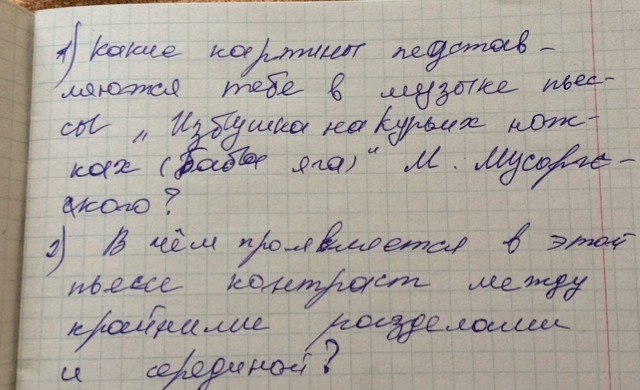 1) Какие картины педстав-
ляются тебе в музыке пьес-
сы „Избушка на курьих нож-
ках (Баба яга)" М. Мусоргс-
ского?
2) В чём проявляется в этой
пьесе контраст между
крайними разделами
и серединой?